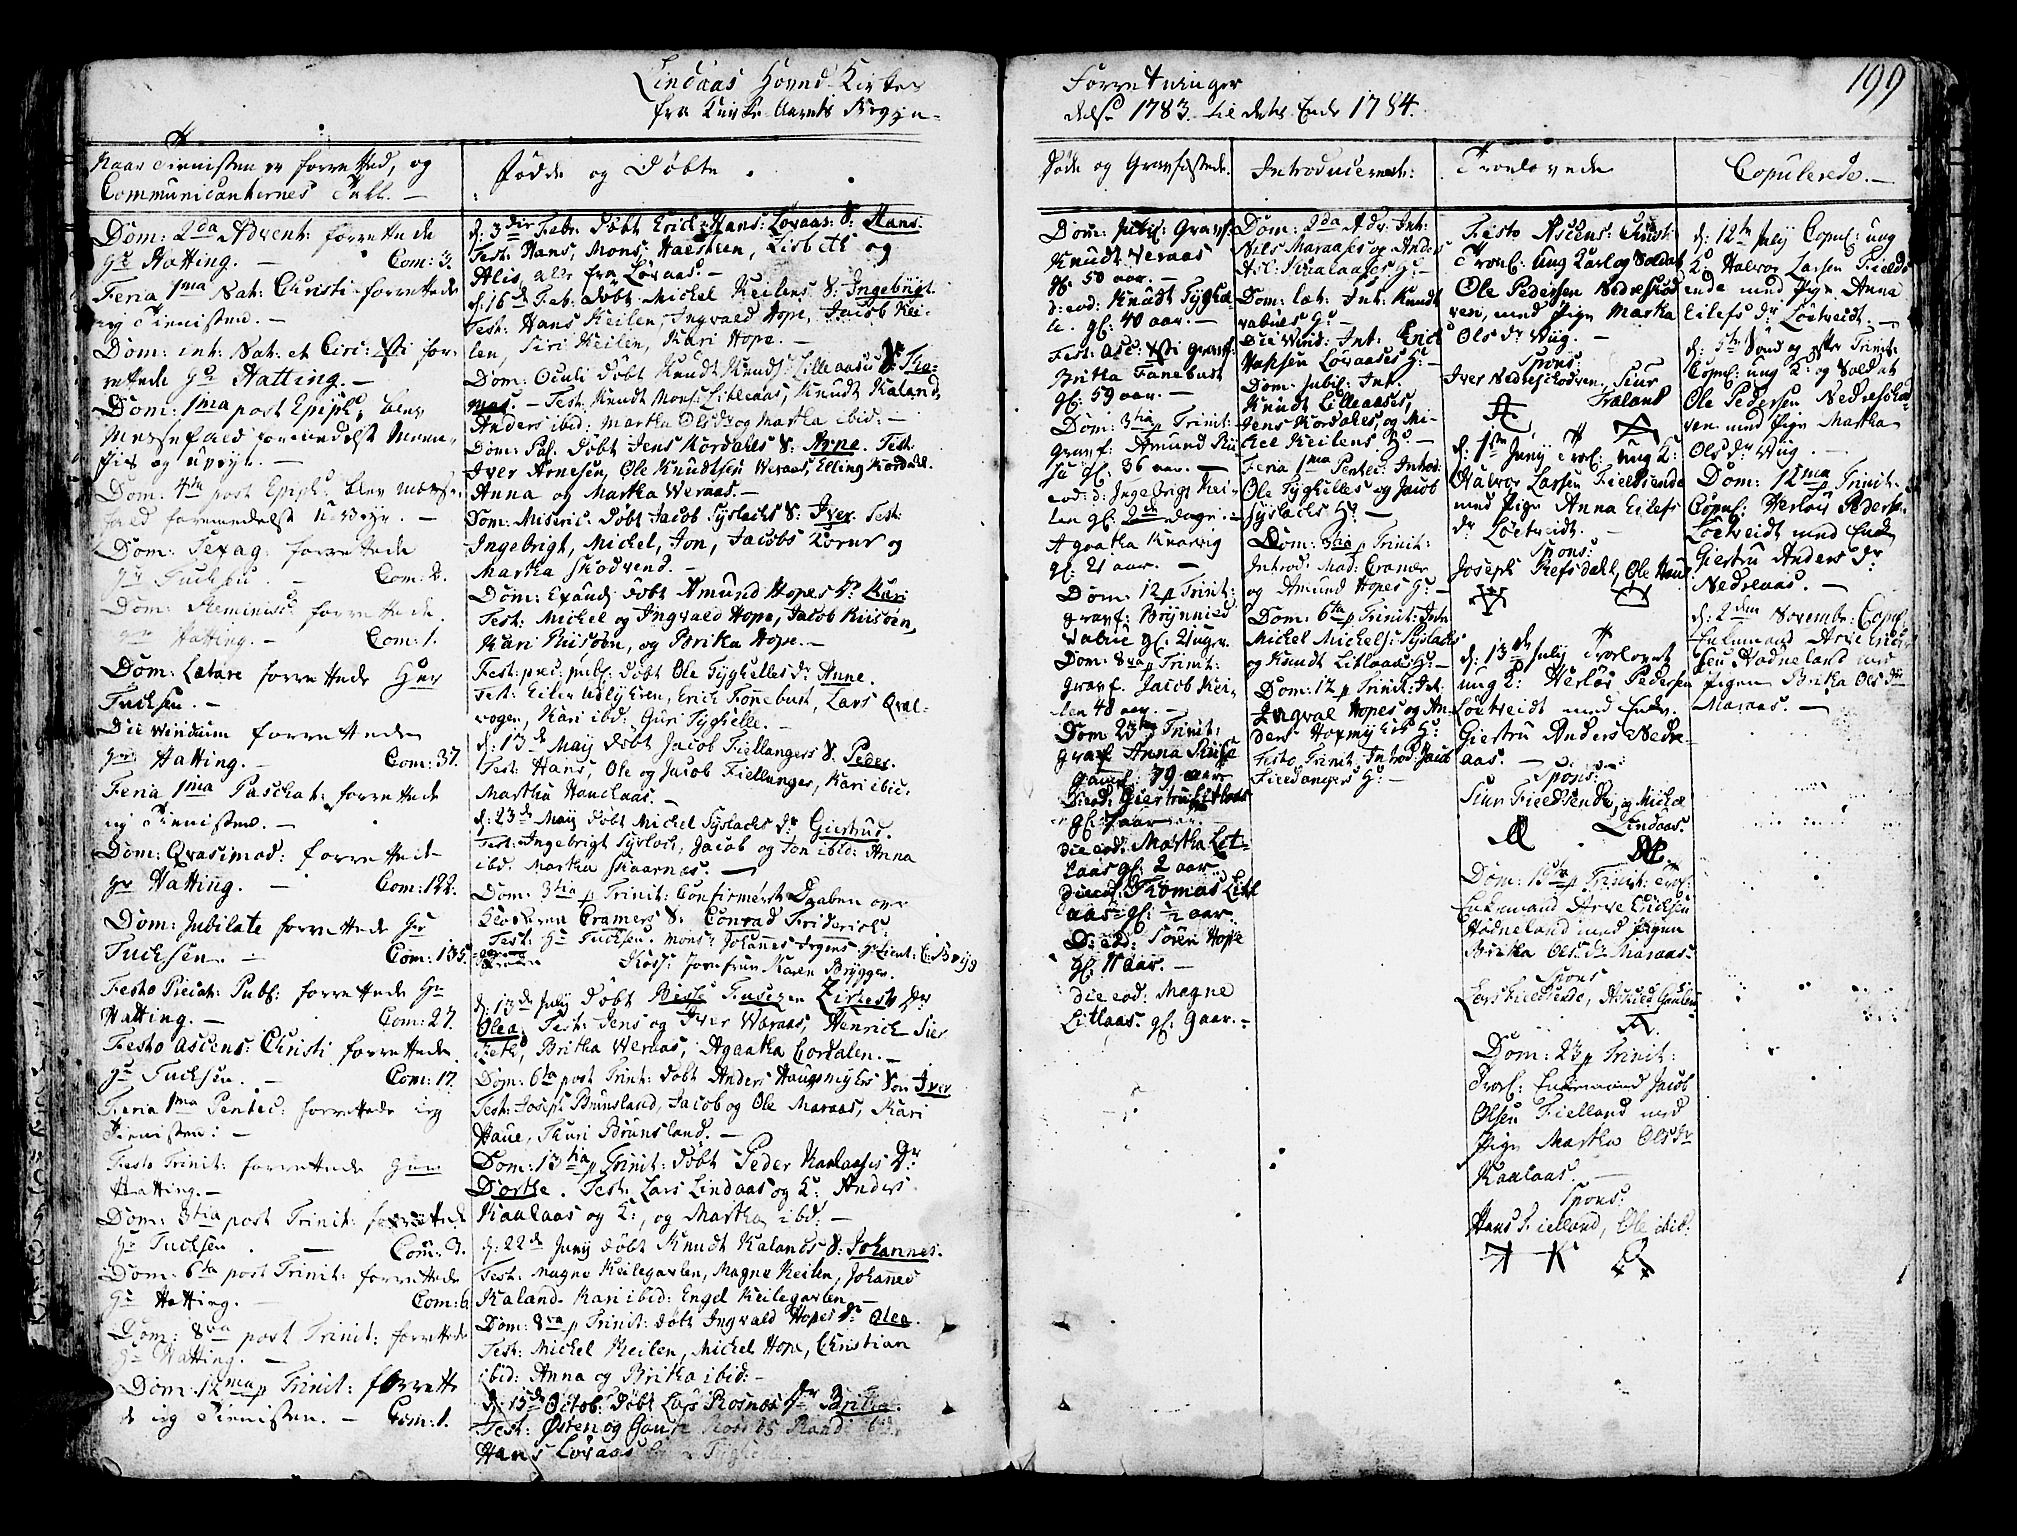 Lindaas Hovud-Kirkes
fra Kirke Aarets Begyn-
Forretninger
delse 1783 til dets Ende 1784.
199
Naar Tienisten er forretted, og
Communicanternes Tall. -
Dom: 2da Advent: forrettede
Hr Hatting. - Com: 3.
Feria 1ma Nat: Christi forrettede
ieg Tienisten. -
Dom: int: Nat: et Circ: Xsti for-
rettede Hr Hatting. -
Dom: 1ma post Epiph: blev
Messefald formedelst
og uveyr. -
Dom: 4ta post Epiph: blev messe-
fald formedelst Uveyr. -
Dom: Sexag: forrettede
Hr Tuchsen. - Com: 2.
Dom: Reminisc: forrettede
Hr Hatting. - Com: 1.
Dom: Lætare forrettede Hr
Tuchsen. -
Die Viridium forrettede
Hr Hatting. - Com: 37.
Feria 1ma Paschat: forrettede
ieg Tienisten. -
Dom: Qvasimod: forrettede
Hr Hatting. - Com: 122.
Dom: Jubilate forrettede Hr
Tuchsen. - Com: 135.
Festo Precat: Publ: forrettede Hr
Hatting. - Com: 27.
Festo Ascens: Christi forrettede
Hr Tuchsen. - Com: 17.
Feria 1ma Pentec: forrettede ieg
Tienisten: -
Festo Trinit: forrettede Hr
Hatting. -
Dom: 3tia post Trinit: forrettede
Hr Tuchsen. - Com: 3.
Dom: 6ta post Trinit: forrettede
Hr Hatting. - Com: 6
Dom: 8va post Trinit: forrettede
Hr Hatting. -
Dom: 12ma p Trinit: forrette
de ieg Tienisten. - Com: 1.
Fødde og Døbte.
d: 3die Febr: døbt Erick Hans: Løvaas: S: Hans.
Test: Hans, Mons, Lisbet og
Alis, alle fra Løvaas. -
d: 16de Feb: døbt Michel Keilens S: Ingebrigt.
Test: Hans Keilen, Ingvald Hope, Jacob Kei-
len, Siri Keilen, Kari Hope. -
Dom: Oculi døbt Knudt Knuds: Lilleaases S: Tho-
mas. - Test: Knudt Mons: Litleaas, Knudt Kaland,
Anders ibid: Martha Olsdr og Martha ibid: -
Dom: Pal: døbt Jens Kordales S: Arne. Test:
Iver Arnesen, Ole Knudtsen Veraas, Elling Kordal.
Anna og Martha Veraas. -
Dom: Miseric: døbt Jacob Syslachs S: Iver. Test:
Ingebrigt, Michel, Jon, Jacobs Kone og
Martha Skodvend. -
Dom: Exaudi døbt Amund Hopes Dr Kari
Test: Michel og Ingvald Hope, Jacob Riisøen,
Kari Riisøen, og Britha Hope. -
Fest: prec: publ: døbt Ole Tyghelles dr Anne.
Test: Erick Fonebust, Lars Qval-
vogen, Kari ibd: Guri Tyghelle. -
d: 13de Maij døbt Jacob Fiellangers S. Peder.
Test: Hans, Ole og Jacob Fiellanger, Kari ibid.
Martha Hauclaas. -
d: 23de Maij døbt Michel Syslachs dr Giertrud.
Test: Ingebrigt Syslach, Jacob og Jon ibid: Anna
ibd. Martha Skaarnes. -
Dom: 3tia p Trinit: Confirmeret Daaben over
Klockeren Cramers S: Conrad Friderich:
Test: Hr Tuchsen. Mons: Johannes
Jomfrue Karen Brygger.
d: 13de July døbt
Olea. Test: Jens og Iver Weraas, Henrich
Britha Weraas, Agaatha Cordalen. -
Dom: 6ta post Trinit: døbt Anders Haugsmyrs Søn Iver
Test: Joseph Brunsland, Jacob og Ole Maraas, Kari
Haue, Thuri Brunsland. -
Dom: 13tia p Trinit: døbt Peder Kaalaases Dr
Dorthe. Test: Lars Lindaas og K: Anders
Kaalaas og K:, og Martha ibid: -
d: 22de Junij døbt Knudt Kalands S: Johannes.
Test: Magne Keilegavlen, Magne Keilen, Johannes
Kaland. Kari ibid: Engel Keilegavlen. -
Dom: 8va p Trinit: døbt Ingvald Hopes dr Olea.
Test: Michel Keilen, Michel Hope, Christian
ibid: Anna og Britha ibid: -
d: 15de Octob. døbt Lars Rosnes dr Britha.
Test: Østen og
Hans Løvaas
Døde og Gravfæstede.
Dom: Jubil: Gravf:
Knudt Veraas
gl: 50 aar. -
d: eod: Knudt Tyghel-
le. gl: 40 aar. -
Fest: Asc: Xsti Gravf:
Britha Fanebust
gl: 59 aar. -
Dom: 3tia p Trinit:
Gravf: Amund
gl: 36 aar. -
eod: d: Ingebrigt Kei-
len gl: dage. -
Agaatha Knarvig
gl: 21 aar. -
Dom: 12 p Trinit:
gravf:
gl: 2 uger. -
Dom: 8va p Trinit:
gravf. Jacob Kei-
len 48 aar. -
Dom 23tia Trinit:
gravf Anna
79 aar.
Die eod: Giertrud Litlaas
gl: 7 aar
die eod: Martha Lit-
laas gl: 2 aar.
die eod: Thomas Litl
aas gl: ½ aar.
Die eod: Søren Hope
gl. 11 aar. -
die eod: Magne
Litlaas. gl: 9 aar. -
Introducerede:
Dom: 2da Adv: Int:
Nils Maraases og Anders
Kaalaases H: -
Dom: Læt: Int: Knudt
H: -
Die Virid: Int: Erick
Løvaases H: -
Dom: Jubil: Int:
Knudt Lilleaases,
Jens Kordales, og Mi-
chel Keilens H: -
Feria 1ma Pentec: Introd:
Ole Tyghelles og Jacob
Syslachs H: -
Dom: 3tia p Trinit:
Introd: Mad: Cramer
og Amund Hopes H: -
Dom: 6ta p Trinit: Intr
Michel Michels: Syslachs
og Knudt Litlaas H: -
Dom: 12 p Trinit: Int:
Ingval Hopes og An-
ders Hopmyers H:
Festo Trinit: Introd: Jacob
Fieldangers H: -
Troelovede
Festo Ascens: Christi:
Trovl: Ung Karl og Soldat
Ole Pedersen Nedreskod-
ven, med Pige Martha
Ols dr Wiig. -
Spons:
Iver Nedreskodven, Siur
Traland
d: 1ste Junij Trol: ung K:
Halvor Larsen Fieldsende
med Pige Anna Eilefs
dr Løetveidt.
Spons:
Joseph Refsdahl, Ole Haul
d: 13de Julij Trolovet
ung K: Herlov Pedersen
Løetveidt med Enke
Giertru Anders Nedre-
aas. -
Spons:
Siur Fieldsende, og Michel
Lindaas.
Dom: 15 p Trinit: Trol:
Enkemand Arve Ericksen
Hodneland med Pigen
Britha Ols: dr Maraas
Spons
Lars Fieldsende,
Dom: 23 p Trinit:
Trol: Enkemand Jacob
Olsen Fielland med
Pige Martha Olsdr
Kaalaas. -
Spons:
Hans Fielland, Ole ibid:
Copulerede. -
d: 12te Julij Copul: ung
K: Halvor Larsen Fields-
ende med Pige Anna
Eilefs dr Løetveidt. -
d: 5te Sønd og efter Trinit:
Copul: ung K: og Soldat
Ole Pedersen Nedreskod-
ven med Pige Martha
Ols dr Wiig. -
Dom: 12ma p Trinit:
Copul: Herlov Peders:
Løetveidt med Enke
Giertru Anders dr
Nedreaas. -
d: 2den Novembr: Copul
Enkemand Arve Erick-
sen Hodneland med
Pigen Britha Ols dr
Maraas. -